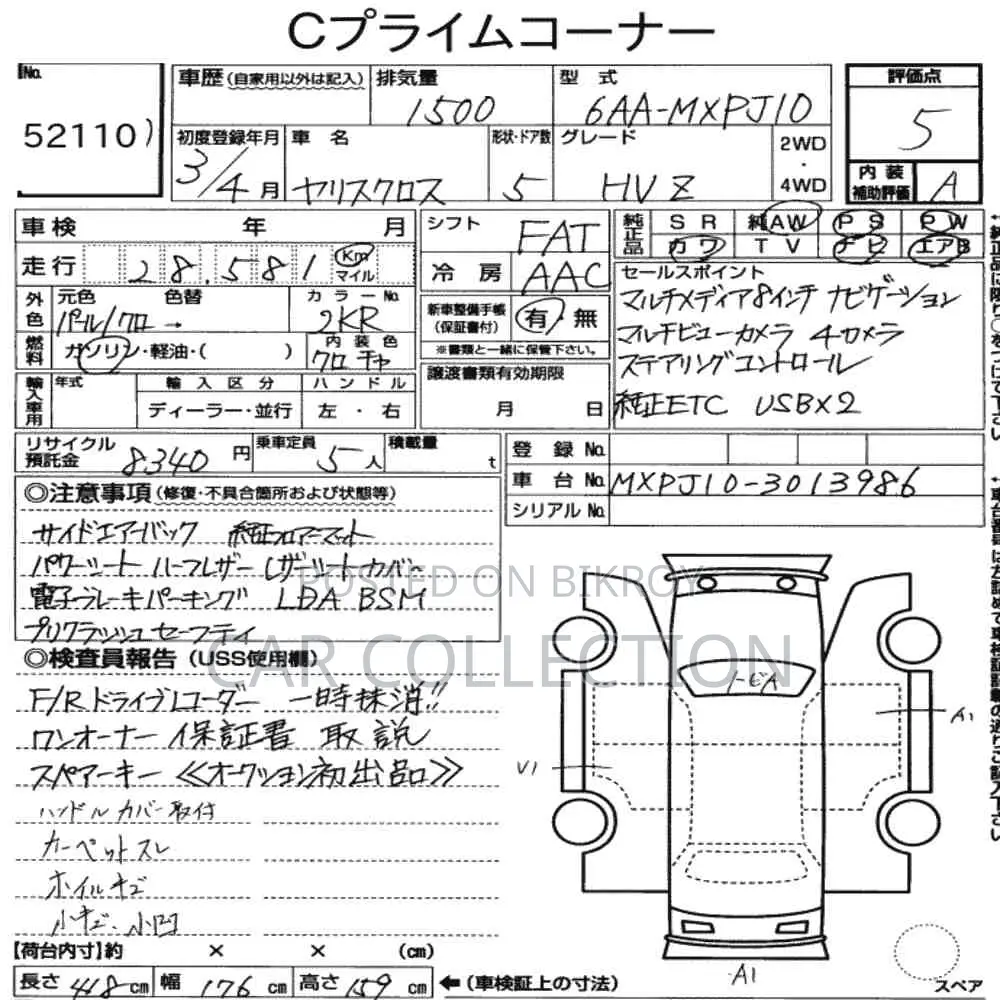 Cプライムコーナー
No. 52110
車歴(自家用以外は記入) 排気量 1500 型式 6AA-MXPJ10 評価点 5
初度登録年月 3/4月 車名 ヤリスクロス 形状・ドア数 5 グレード HV Z 2WD・4WD 内装補助評価 A
車検 年 月 シフト FAT 純正品 SR 純AW PS PW
走行 28,581 Km マイル カワ TV ナビ エアB
冷房 AAC
外色 元色 パール/クロ 色替 → カラーNo. 2KR
新車整備手帳(保証書付) 有・無
※書類と一緒に保管下さい。
燃料 ガソリン・軽油・( ) 内装色 クロ チャ
輸入車用 年式 輸入区分 ディーラー・並行 ハンドル 左・右
譲渡書類有効期限 月 日
セールスポイント
マルチメディア8インチ ナビゲーション
マルチビューカメラ 4カメラ
ステアリングコントロール
純正ETC USB×2
リサイクル預託金 8340円 乗車定員 5人 積載量 t
登録No.
車台No. MXPJ10-3013986
シリアルNo.
◎注意事項(修復・不具合箇所および状態等)
サイドエアーバック 純正フロアーマット
パワーシート ハーフレザー レザーシートカバー
電子ブレーキパーキング LDA BSM
プリクラッシュセーフティ
◎検査員報告(USS使用欄)
F/Rドライブレコーダー 一時抹消!!
ワンオーナー 保証書 取説
スペアーキー 《オークション初出品》
ハンドルカバー取付
カーペットスレ
ホイルキズ
小キズ・小凹
POSTED ON BIKROY
CAR COLLECTION
A1
U1
A1
スペア
【荷台内寸】約 × × (cm)
長さ 418 cm 幅 176 cm 高さ 159 cm ←(車検証上の寸法)